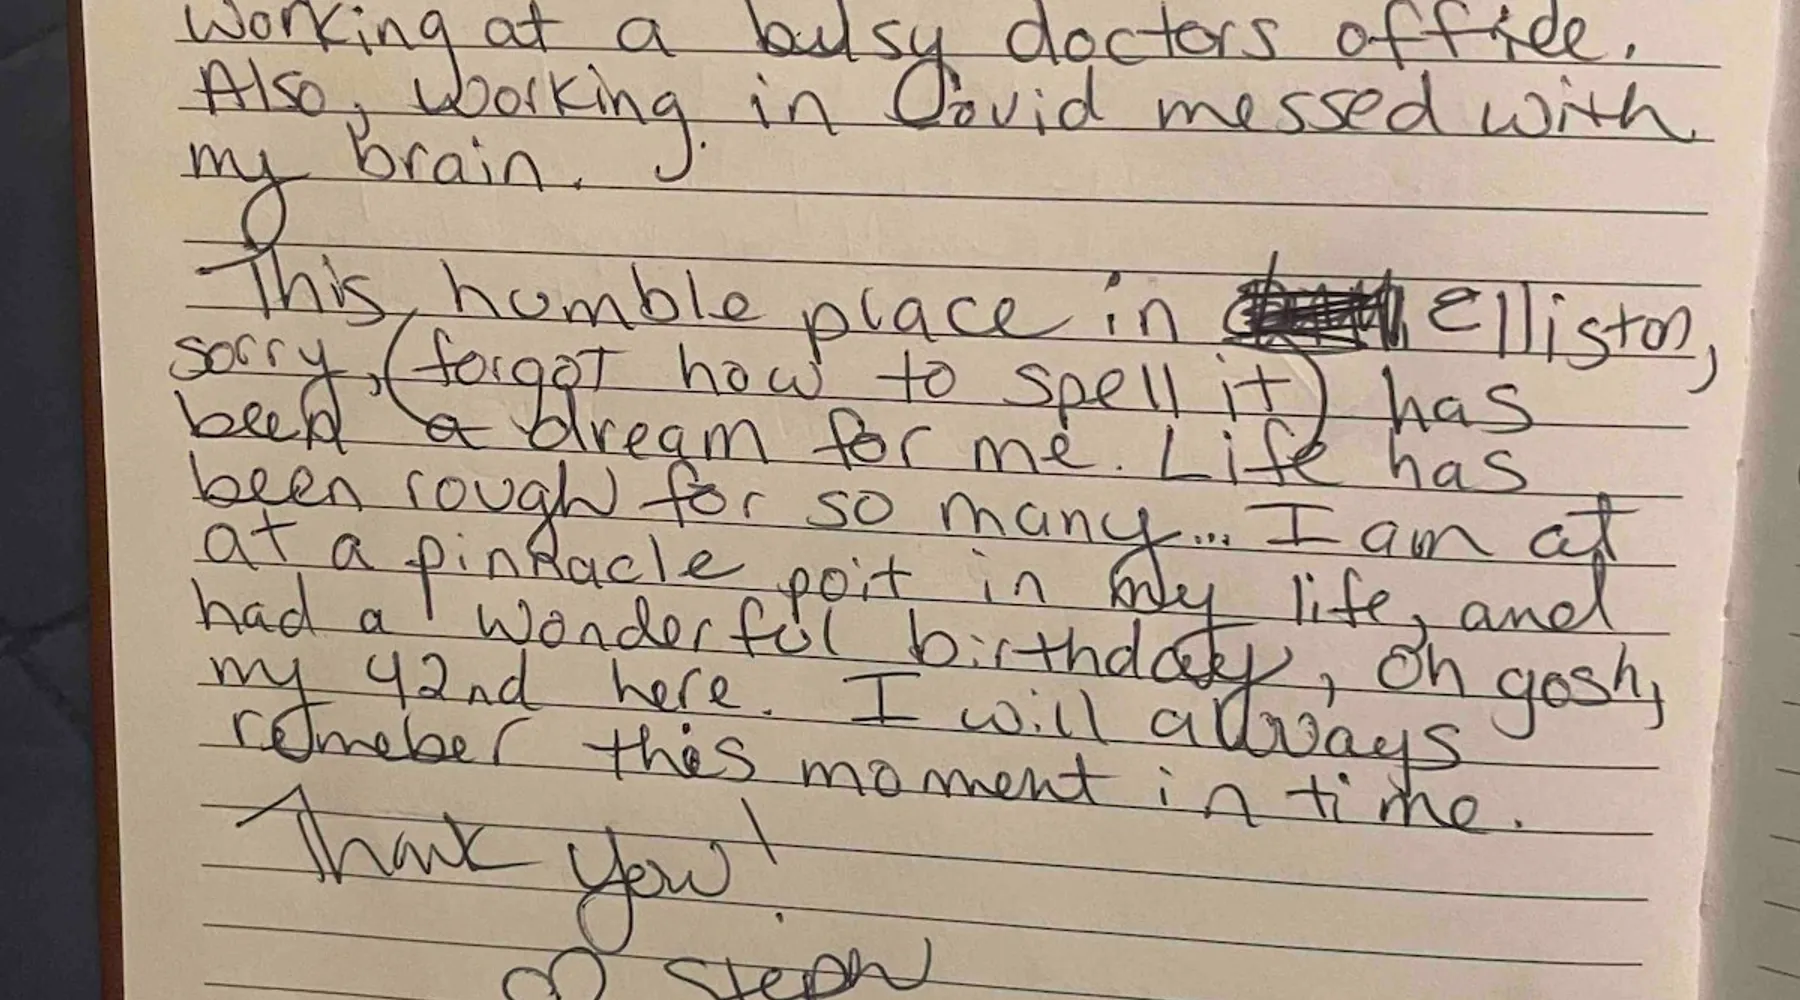 working at a busy doctors office.
Also, working in Covid messed with
my brain.
This humble place in elliston,
sorry, (forgot how to spell it) has
been a dream for me. Life has
been rough for so many... I am at
at a pinnacle poit in my life, and
had a wonderful birthday, oh gosh,
my 42nd here. I will always
remeber this moment in time.
Thank you!
Steph